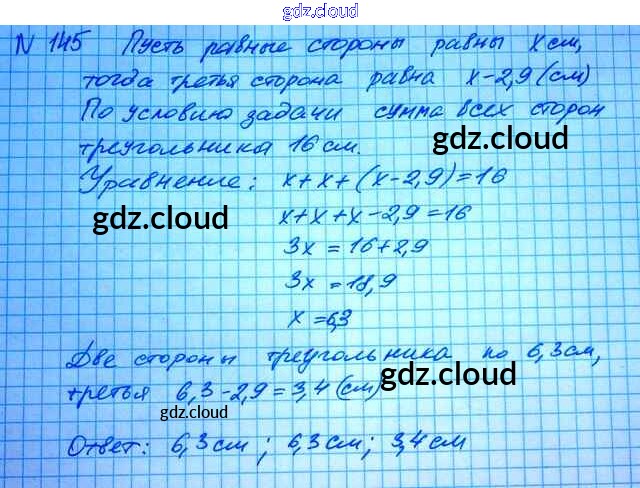 gdz.cloud
N 145 Пусть равные стороны равны x см,
тогда третья сторона равна x-2,9 (см)
По условию задачи сумма всех сторон
gdz.cloud
треугольника 16 см.
Уравнение: x+x+(x-2,9)=16
gdz.cloud
x+x+x-2,9=16
3x = 16+2,9
3x = 18,9
gdz.cloud
x = 6,3
Две стороны треугольника по 6,3 см,
третья 6,3-2,9=3,4 (см)
gdz.cloud
gdz.cloud
Ответ: 6,3 см; 6,3 см; 3,4 см